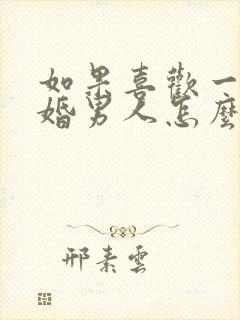 如果喜歡一
婚男人怎麼
邢素雲